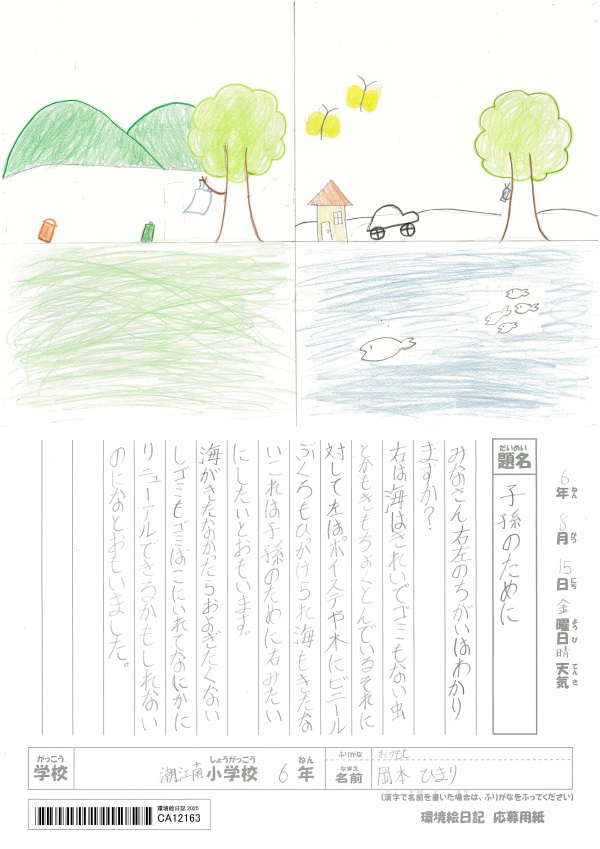 6年 8月 15日 金曜日 晴天気
ねん がつ にち ようび てんき
だいめい
題名
子孫のために
みなさん右左のちがいはわかり
ますか？
右は海はきれいでゴミもない虫
とかもきもちよくとんでいるそれに
対して左はポイステや木にビニール
ぶくろもひっかけられ海もきたな
いこれは子孫のために右みたい
にしたいとおもいます。
海がきたなかったらおよぎたくない
しゴミもゴミばこにいれてなにかに
リニューアルできるかもしれない
のになとおもいました。
がっこう しょうがっこう ねん
学校 潮江南小学校 6年
ふりがな おかもと
なまえ
名前 岡本 ひまり
(漢字で名前を書いた場合は、ふりがなをふってください)
環境絵日記 応募用紙
環境絵日記 2025
CA12163